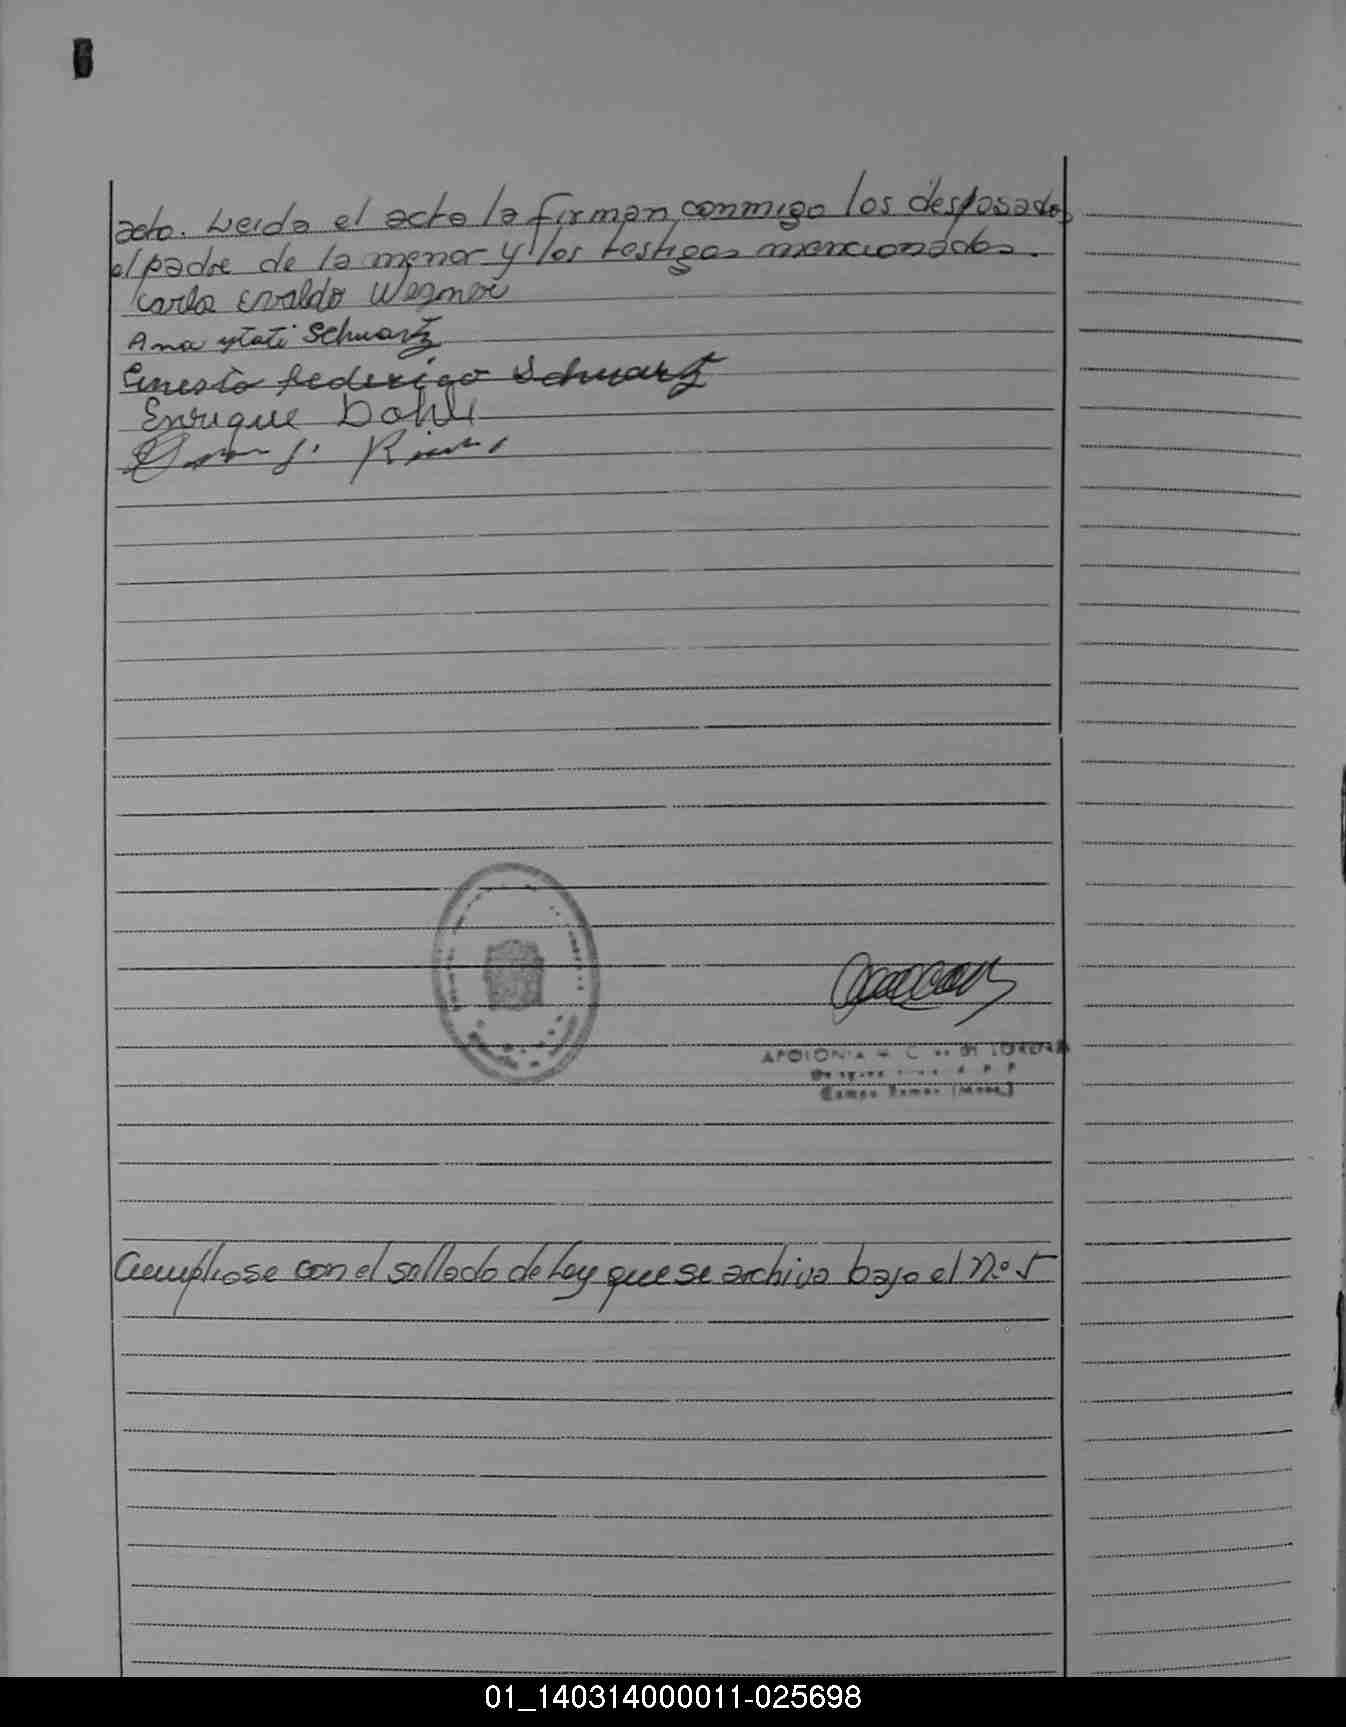 acto. Leida el acta la firman conmigo los desposados
el padre de la menor y los testigos mencionados.
Carlos Evaldo Wegner
Ana ytati Schwartz
Ernesto federico Schwartz
Enrique Dohle
APOLONIA C de LORENZ
Campo Ramon (Mnes.)
Cumpliose con el sellado de Ley que se archiva bajo el nº 5
01_140314000011-025698